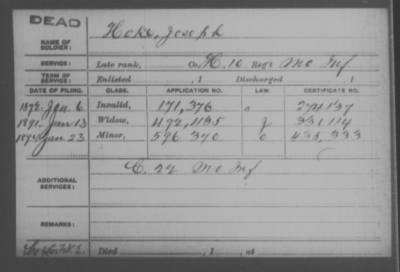 DEAD
NAME OF SOLDIER: Hoke, Joseph
SERVICE: Late rank, Co. H, 10 Reg't Mo Inf
TERM OF SERVICE: Enlisted , 1 Discharged , 1
DATE OF FILING. CLASS. APPLICATION NO. LAW. CERTIFICATE NO.
1872 Jan. 6 Invalid, 171,376 274137
1891 Jan 13 Widow, 492,1135 331114
Jan 23 Minor, 596 370 435,333
ADDITIONAL SERVICES: C. 24 Mo Inf
REMARKS:
Died , 1 , at